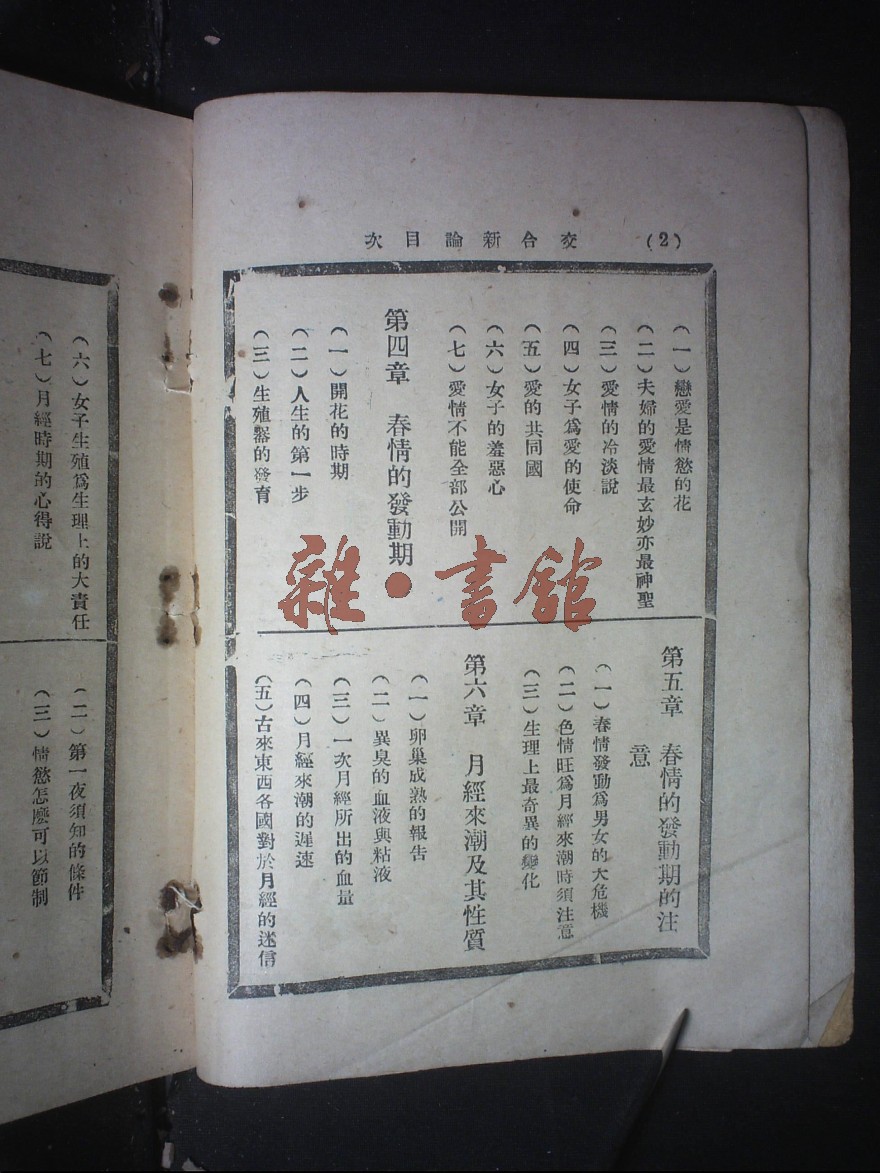 (2) 交合新論目次
(一)戀愛是情慾的花
(二)夫婦的愛情最玄妙亦最神聖
(三)愛情的冷淡說
(四)女子爲愛的使命
(五)愛的共同國
(六)女子的羞惡心
(七)愛情不能全部公開
第四章 春情的發動期
(一)開花的時期
(二)人生的第一步
(三)生殖器的發育
第五章 春情的發動期的注
意
(一)春情發動爲男女的大危機
(二)色情旺爲月經來潮時須注意
(三)生理上最奇異的變化
第六章 月經來潮及其性質
(一)卵巢成熟的報告
(二)異臭的血液與粘液
(三)一次月經所出的血量
(四)月經來潮的遲速
(五)古來東西各國對於月經的迷信
(六)女子生殖爲生理上的大責任
(七)月經時期的心得說
(二)第一夜須知的條件
(三)情慾怎麼可以節制
雜·書館